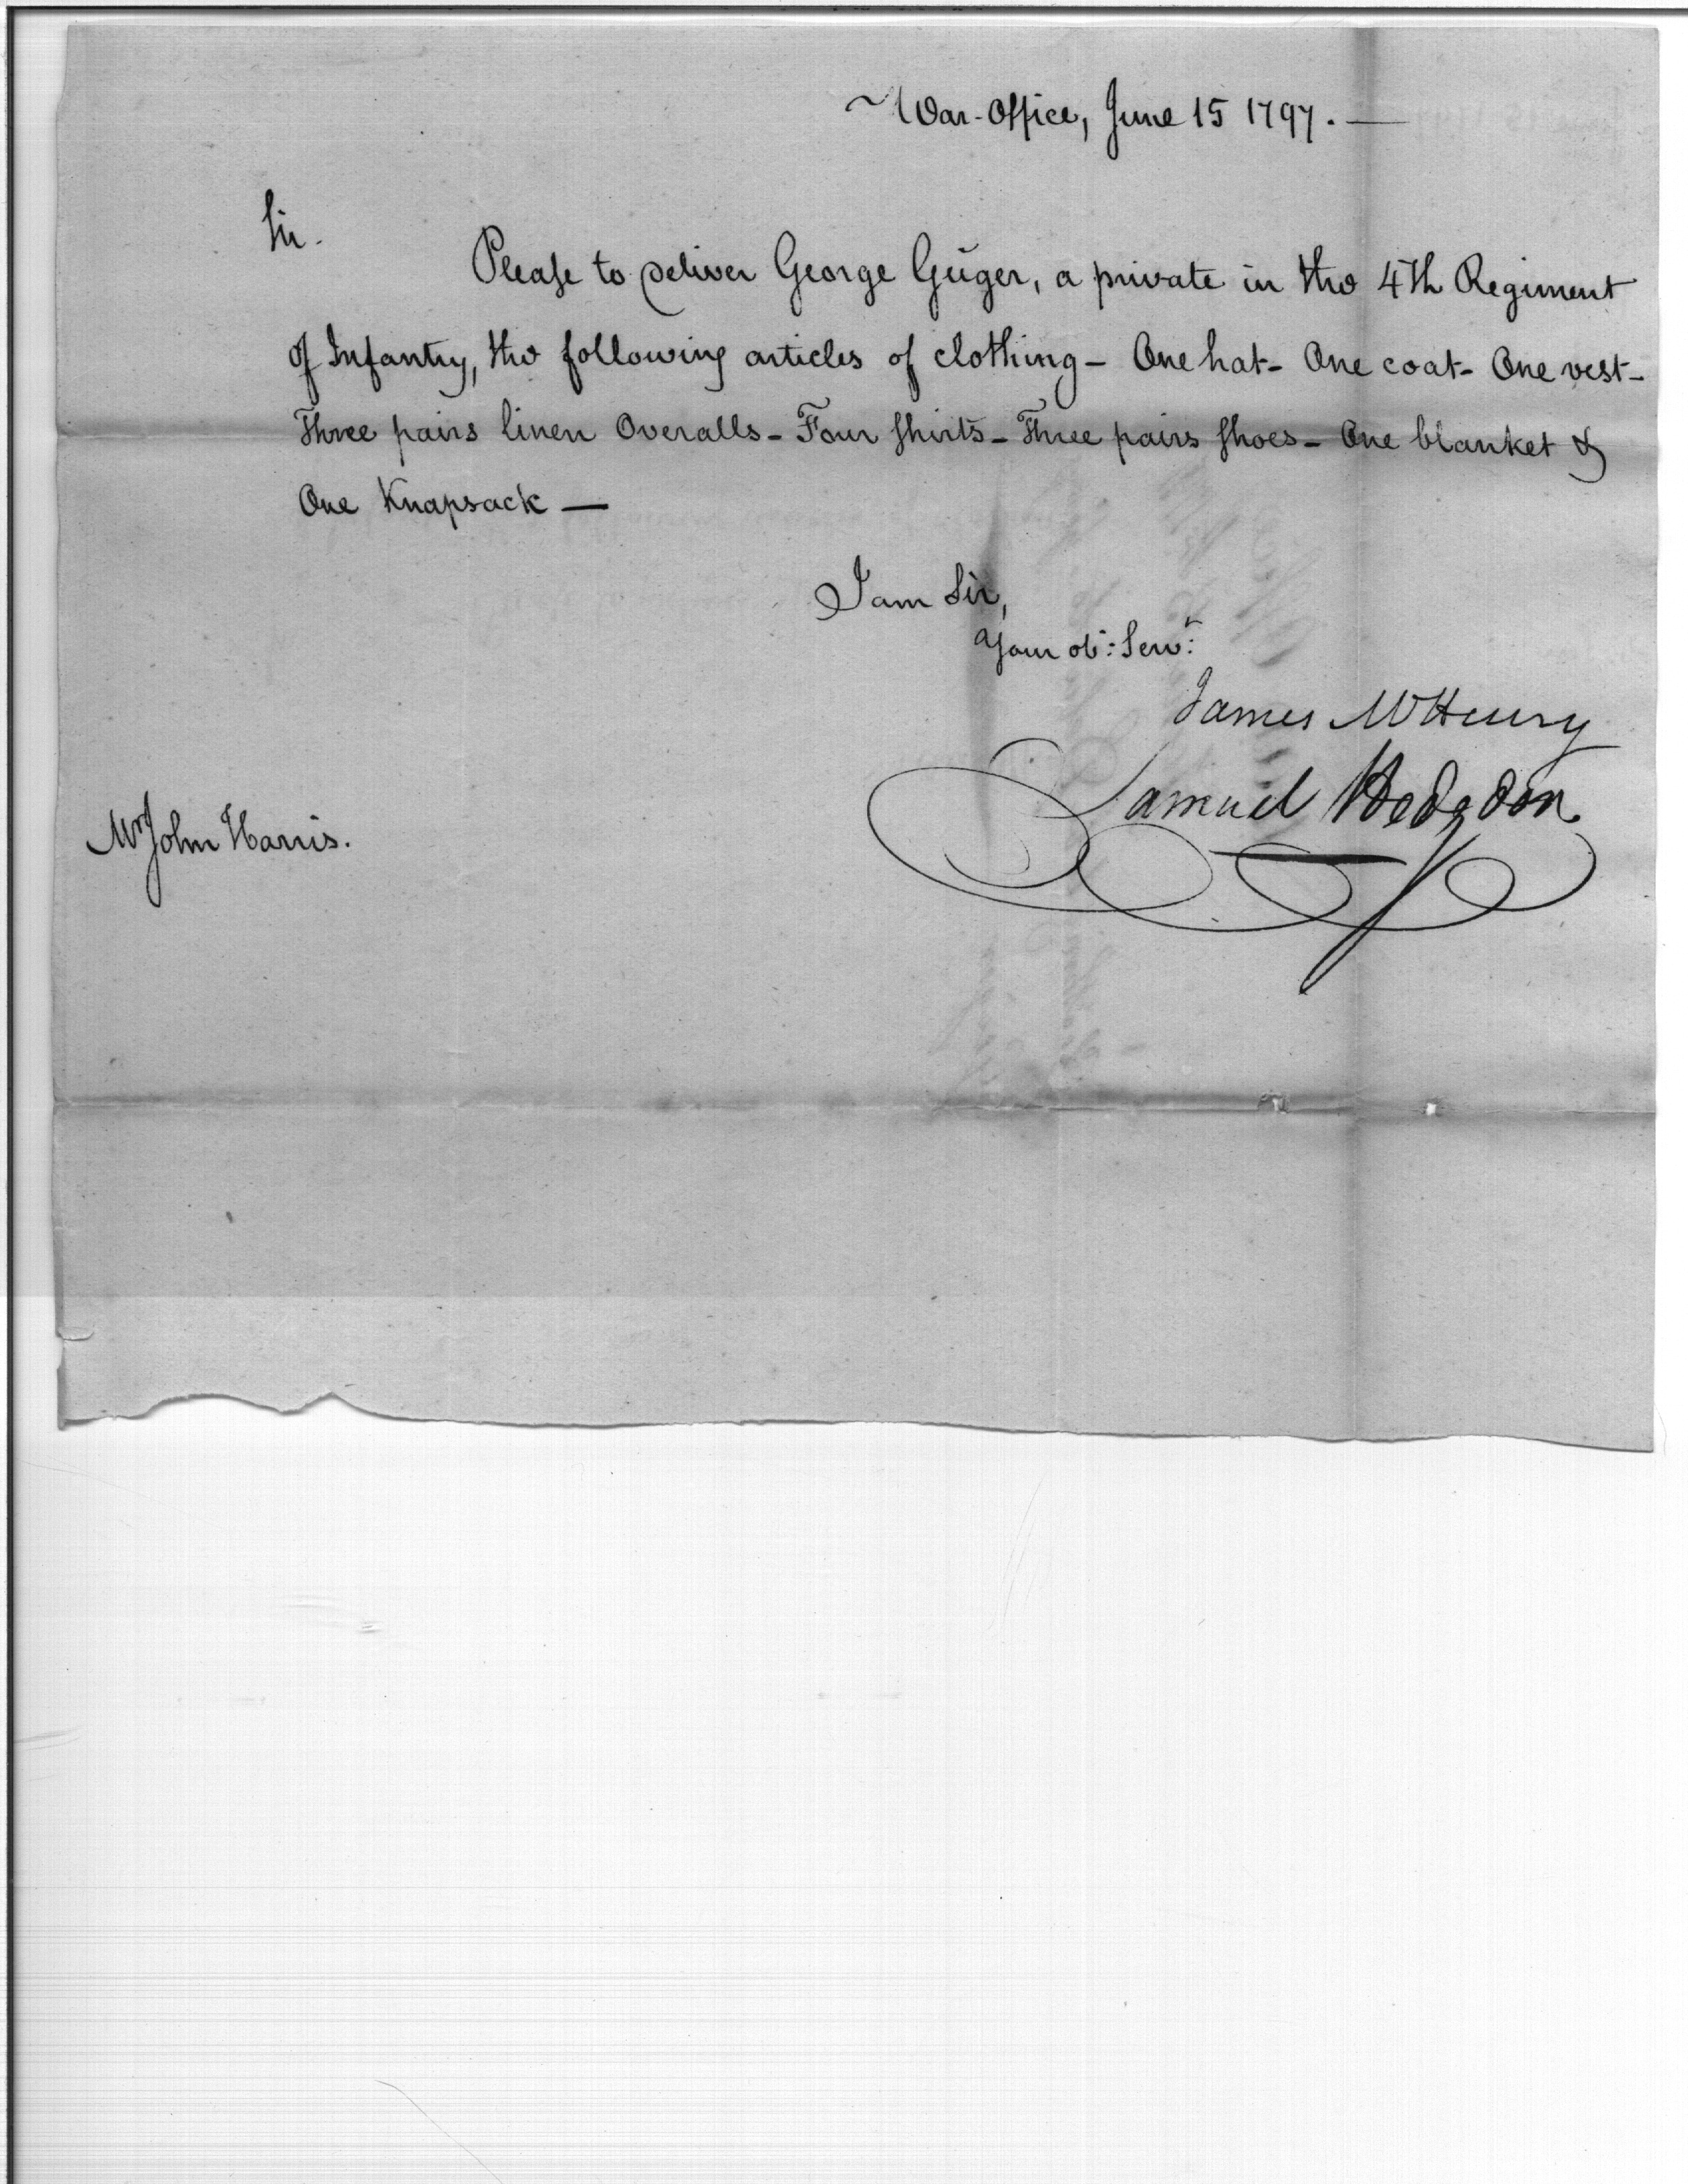 War-Office, June 15 1797. —
Sir.
Please to deliver George Geiger, a private in the 4th Regiment
of Infantry, the following articles of clothing - One hat - One coat - One vest -
Three pairs linen Overalls - Four Shirts - Three pairs Shoes - One blanket &
One Knapsack —
I am Sir,
Your ob^t: Serv^t:
James McHenry
Samuel Hodgdon
Mr John Harris.